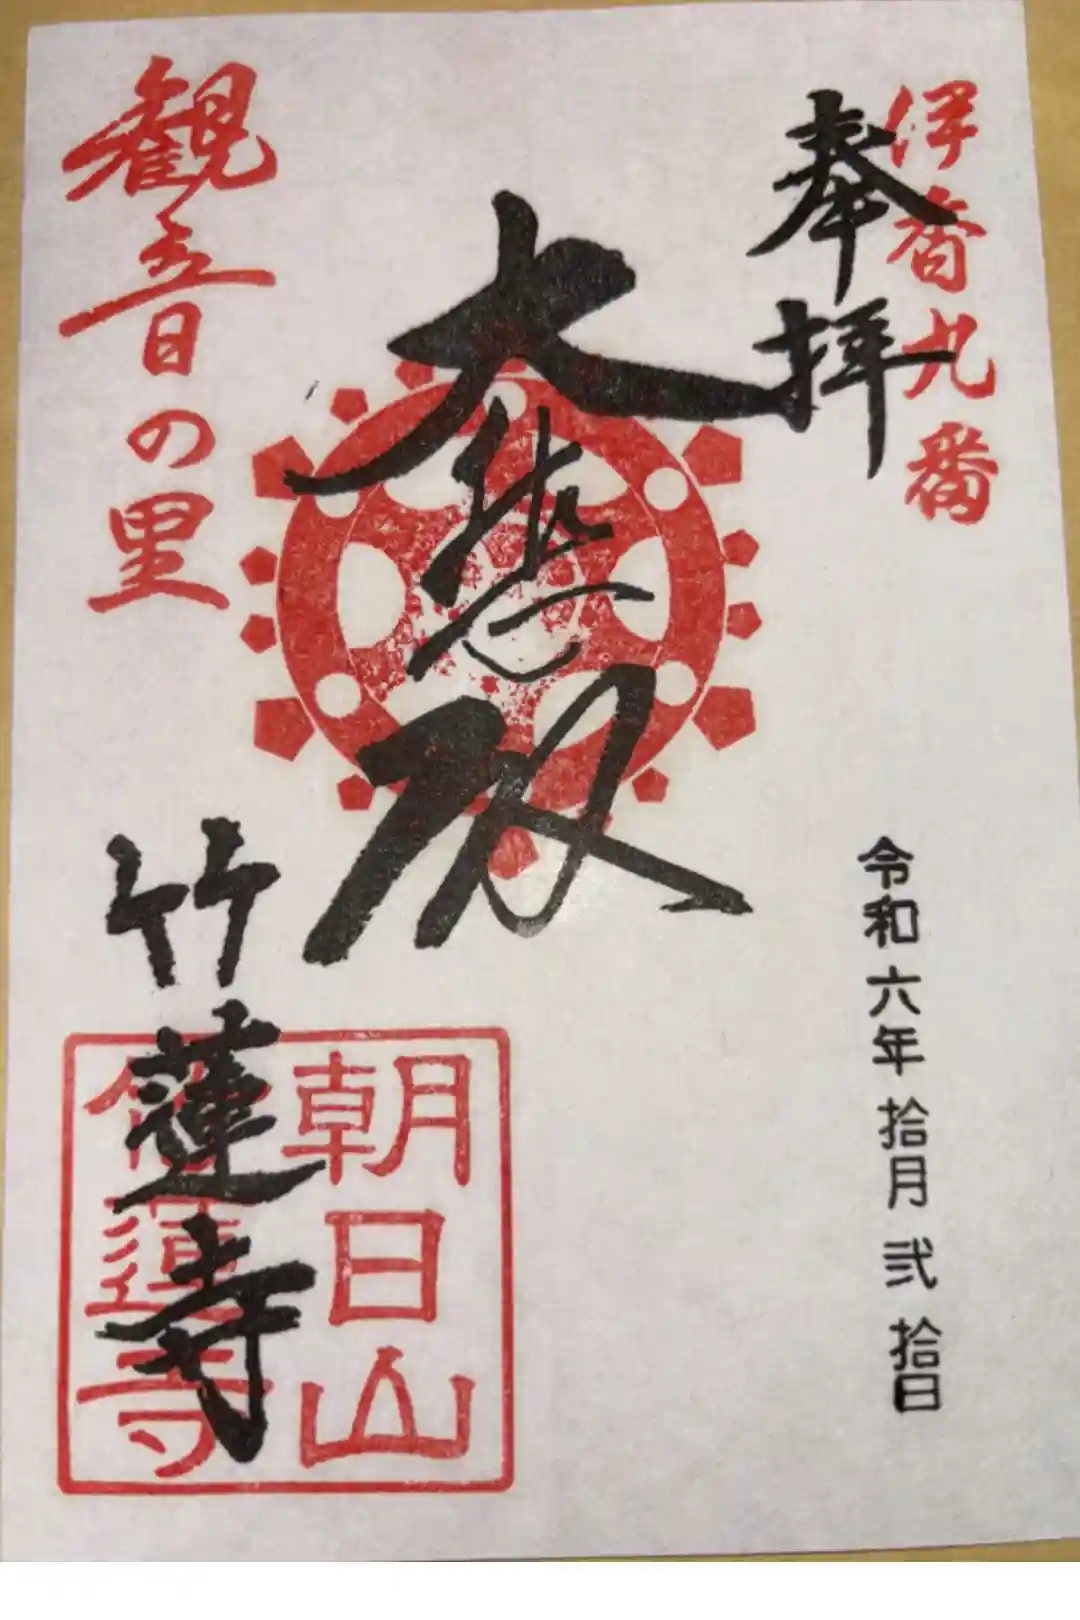 伊香九番
奉拝
令和六年拾月弐拾日
大悲殿
観音の里
竹蓮寺
朝日山
竹蓮寺